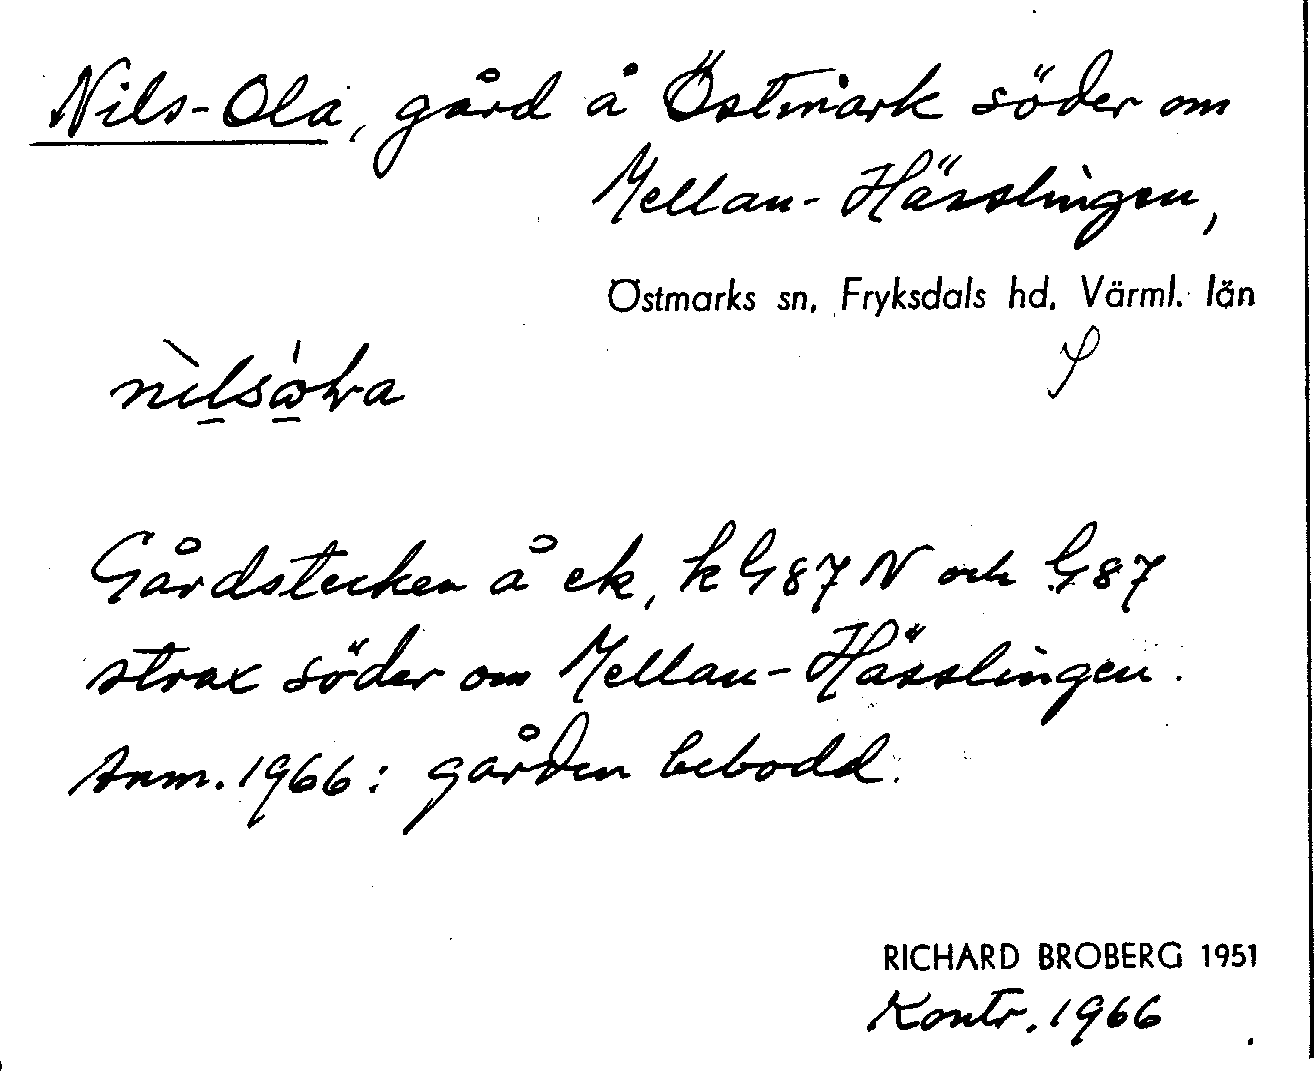 Nils-Ola, gård å Östmark söder om
Mellan-Hässlingen,
Östmarks sn, Fryksdals hd. Värml. län
Gårdstecken å ek, k G 87 N och G 87
strax söder om Mellan-Hässlingen.
Anm. 1966: gården bebodd.
RICHARD BROBERG 1951
Kontr. 1966